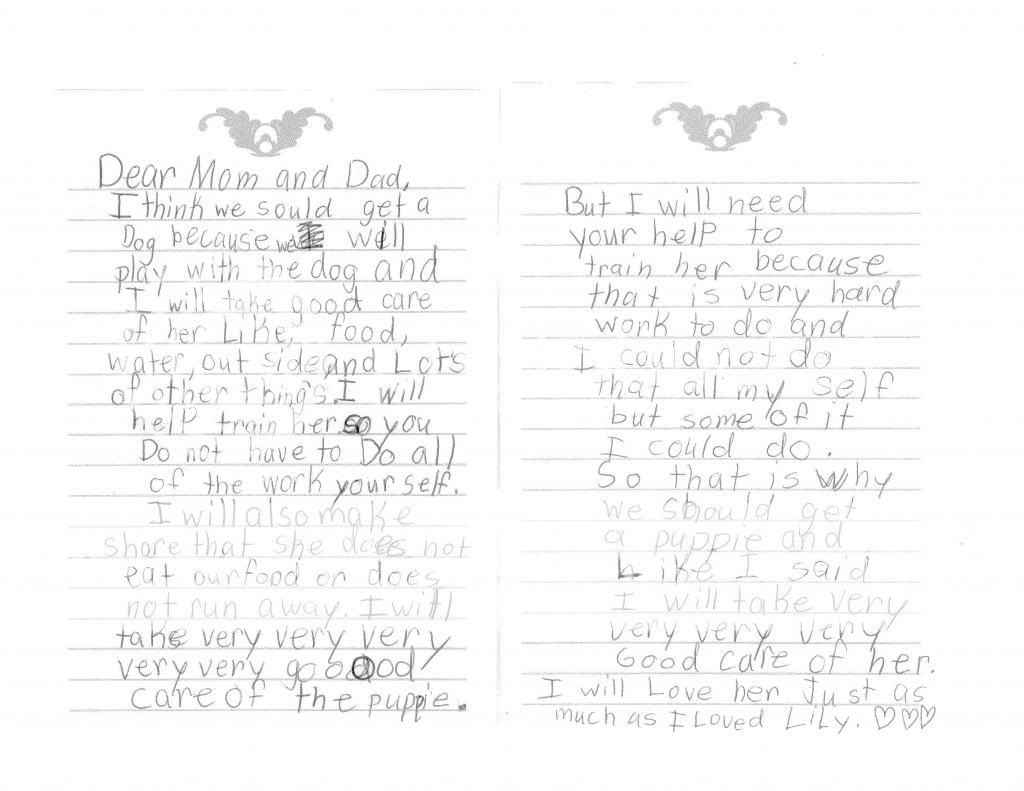 Dear Mom and Dad,
I think we sould get a
Dog because we will
play with the dog and
I will take good care
of her Like, food,
water, out side and Lots
of other things. I will
help train her so you
Do not have to Do all
of the work your self.
I will also make
shore that she does not
eat our food or does
not run away. I will
take very very very
very very gooood
care of the puppie.
But I will need
your help to
train her because
that is very hard
work to do and
I could not do
that all my self
but some of it
I could do.
So that is why
we should get
a puppie and
Like I said
I will take very
very very very
Good care of her.
I will Love her Just as
much as I Loved LiLy. ♡♡♡